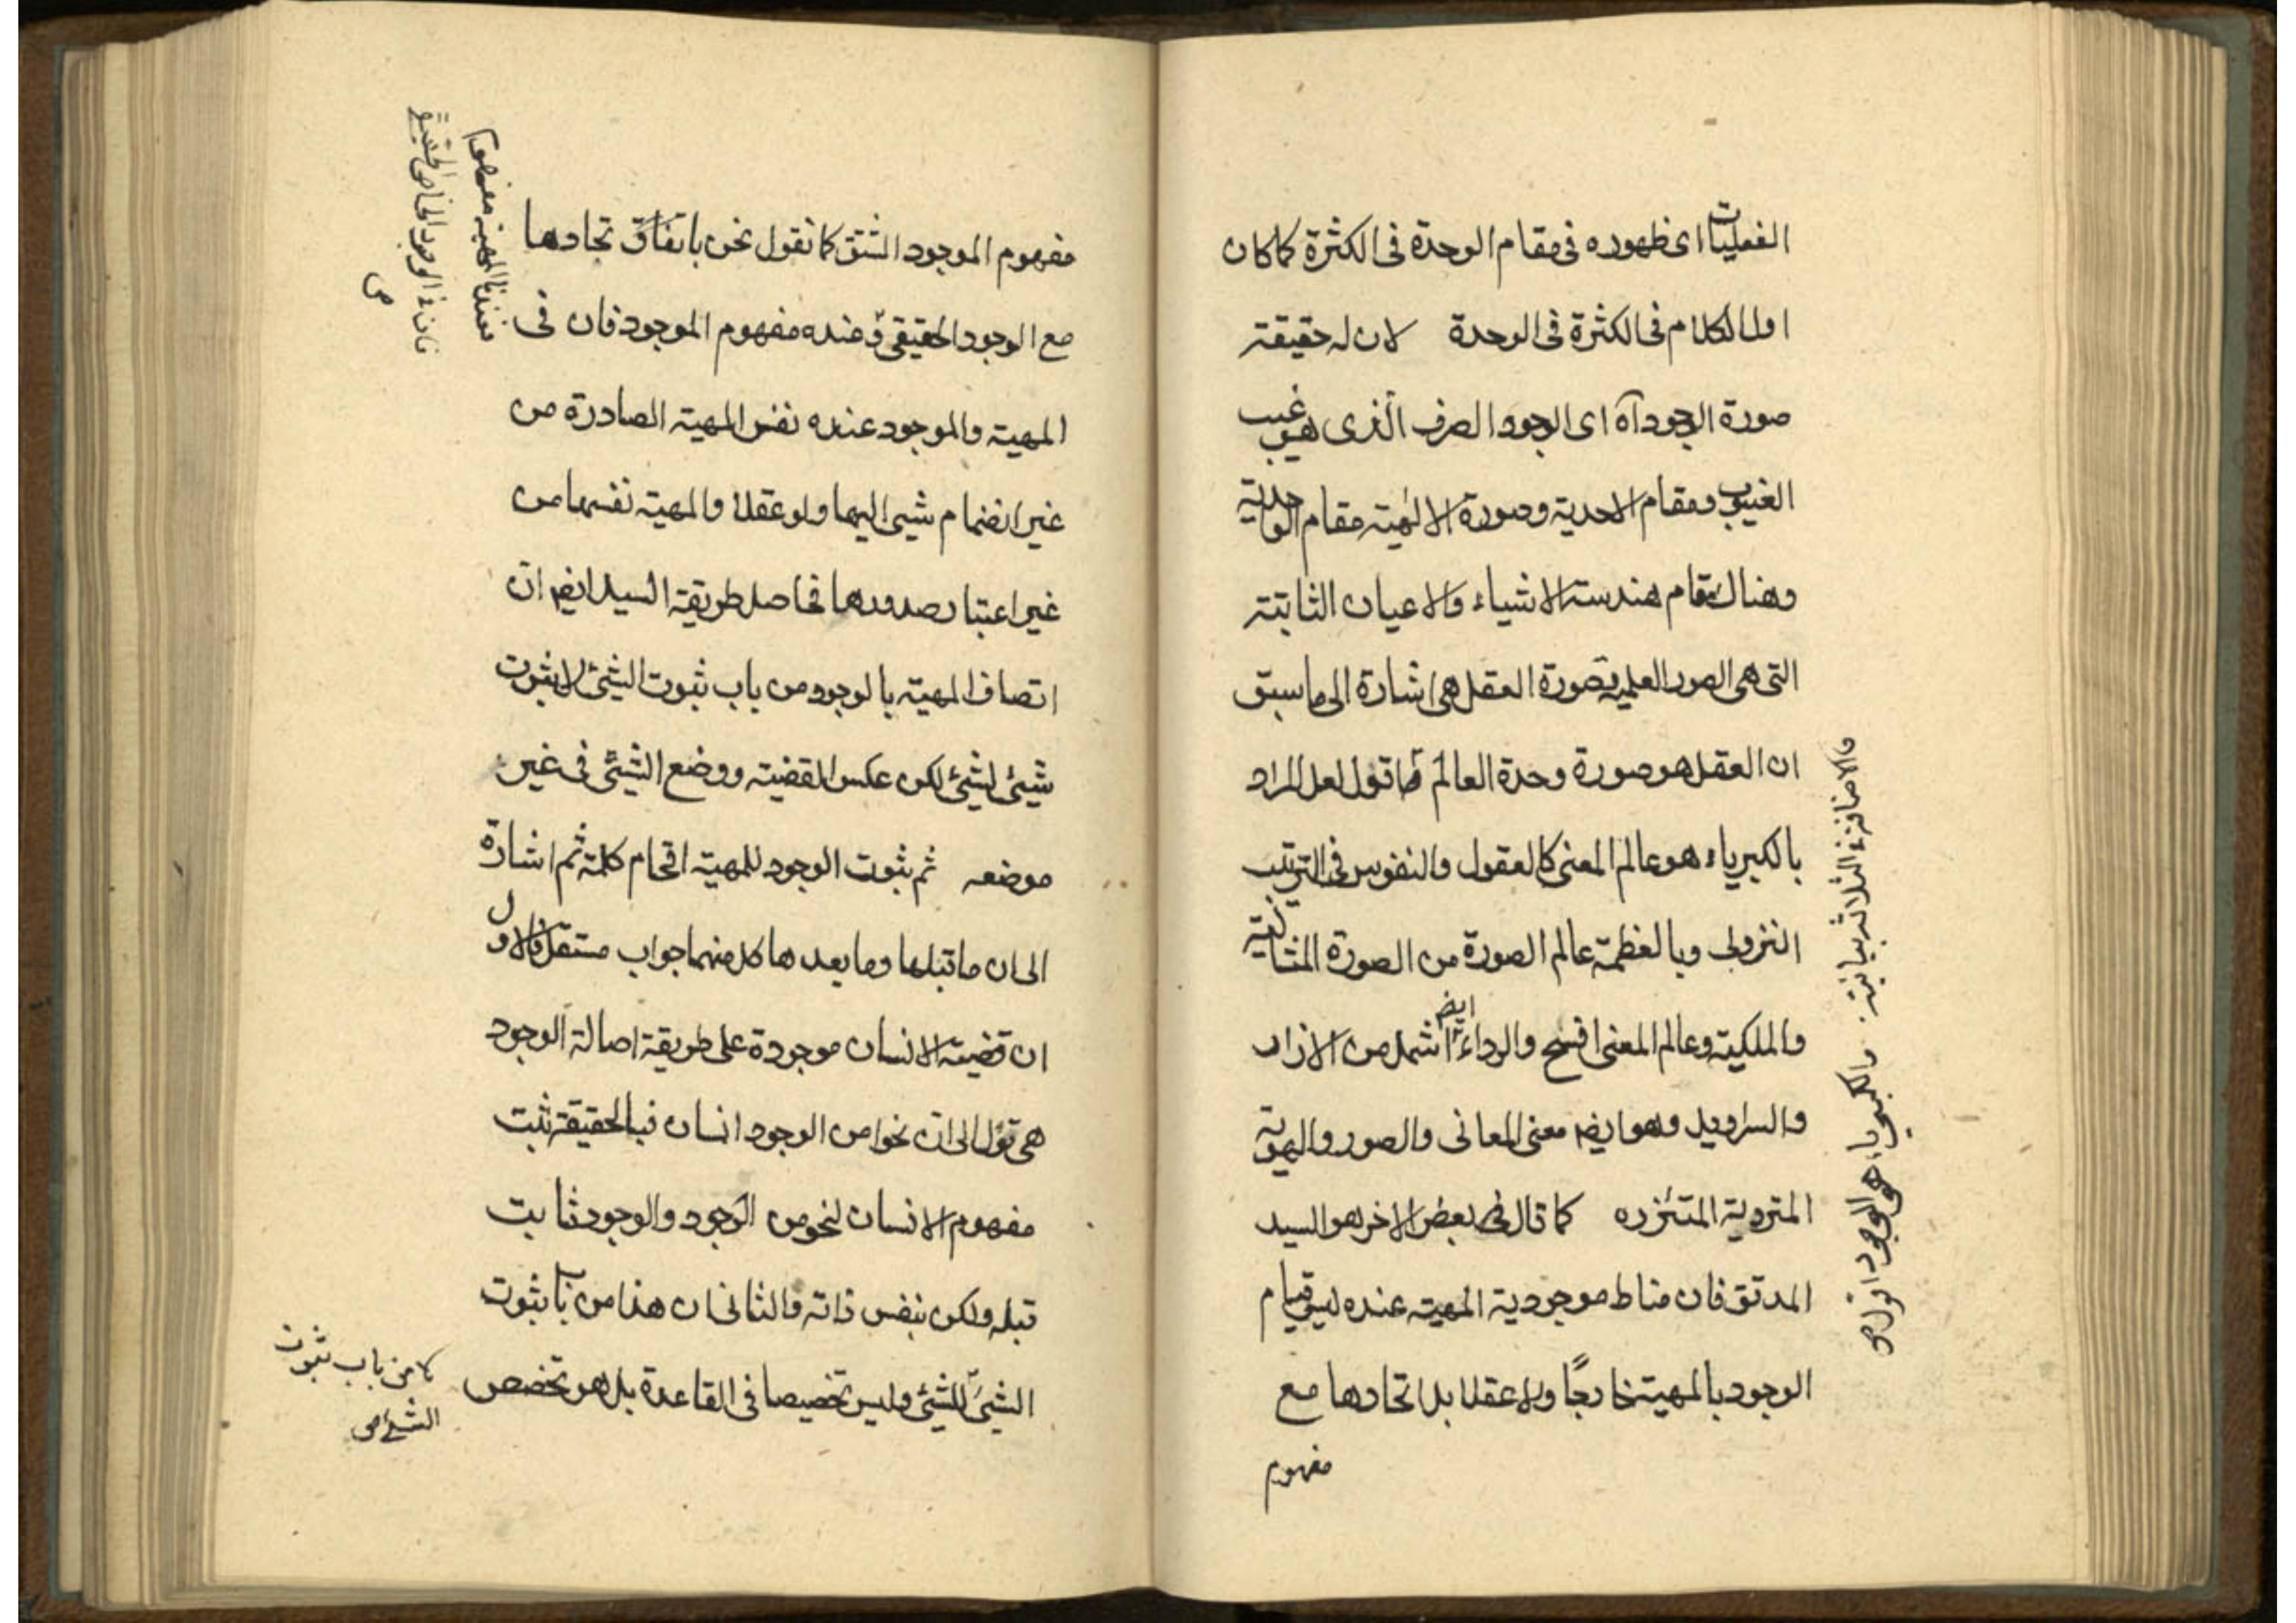 الفعليات اى ظهوره فى مقام الوحدة فى الكثرة كما كان
اولا الكلام فى الكثرة فى الوحدة لان له حقيقته
صورة الوجود آه اى الوجود الصرف الّذى هو غيب
الغيوب ومقام الاحدية وصورة الالٰهيته مقام الواحدية
وهناك مقام هندسته الاشياء والاعيان الثابتته
التى هى الصور العلمية وصورة العقل هى اشارة الى ما سبق
ان العقل هو صورة وحدة العالم اقول لعل المراد
بالكبرياء هو عالم المعنى كالعقول والنفوس فى الترتيب
النزولى وبالعظمة عالم الصورة من الصورة المثالية
والملكية وعالم المعنى افسح والرداء ايضا اشمل من الازار
والسراويل وهو ايضا معنى المعانى والصور والهوية
المتردية المتئزره كما قال بعض الاخر هو السيد
المدقق فان مناط موجودية المهية عنده ليس قيام
الوجود بالمهية خارجًا ولا عقلا بل اتحادها مع
مفهوم
والاضافة فى الثلاثة بيانية. والكبرياء هو الوجود
مفهوم الموجود المشتق كما نقول نحن باتفاق تحادها
مع الوجود الحقيقى وعنده مفهوم الموجود فان فى
المهية والموجود عنده نفس المهية الصادرة من
غير انضمام شيى اليها ولو عقلا والمهية نفسها من
غير اعتبار صدورها فحاصل طريقة السيد ايضا ان
اتصاف المهية بالوجود من باب ثبوت الشيئ لا ثبوت
شيئ لشيئ لكن عكس القضية ووضع الشيئ فى غير
موضعه ثم ثبوت الوجود للمهية اقحام كلمة ثم اشارة
الى ان ما قبلها وما بعدها كل منهما جواب مستقل فالاول
ان قضية الانسان موجودة على طريقة اصالة الوجود
هى تؤل الى ان نحوا من الوجود انسان فبالحقيقة ثبت
مفهوم الانسان لنحو من الوجود والوجود ثابت
قبله ولكن بنفس ذاته والثانى ان هذا من باب ثبوت
الشيئ للشيئ وليس تخصيصا فى القاعدة بل هو تخصص
فعندنا المهية مفهوم
فان فى الوجود الخاص الحقيقى
ص
لا من باب ثبوت
الشيئ ص